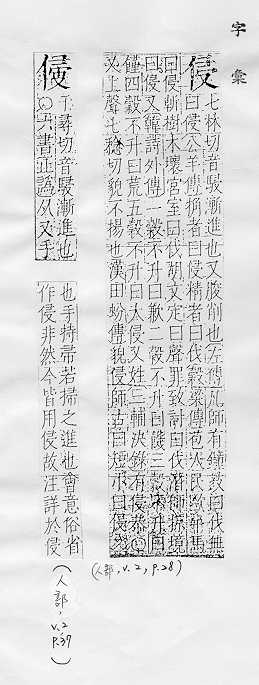 字彙
侵
七林切音駸漸進也又朘削也左傳凡師有鐘鼓曰伐無
曰侵公羊傳觕者曰侵精者曰伐穀梁傳苞人民敺牛馬
曰侵斬樹木壞宮室曰伐胡文定曰聲罪致討曰伐潛師掠境
曰侵又韓詩外傳一穀不升曰歉二穀不升曰饑三穀不升曰
饉四穀不升曰荒五穀不升曰大侵又姓三輔決錄有侵恭〇
又上聲七稔切貌不揚也漢田蚡傳貌侵師古曰短小曰侵
(人部, v.2, p.28)
千尋切音駸漸進也
〇六書正譌从又手
也手持帚若掃之進也會意俗省
作侵非然今皆用侵故注詳於侵
(人部, v.2 p.39)